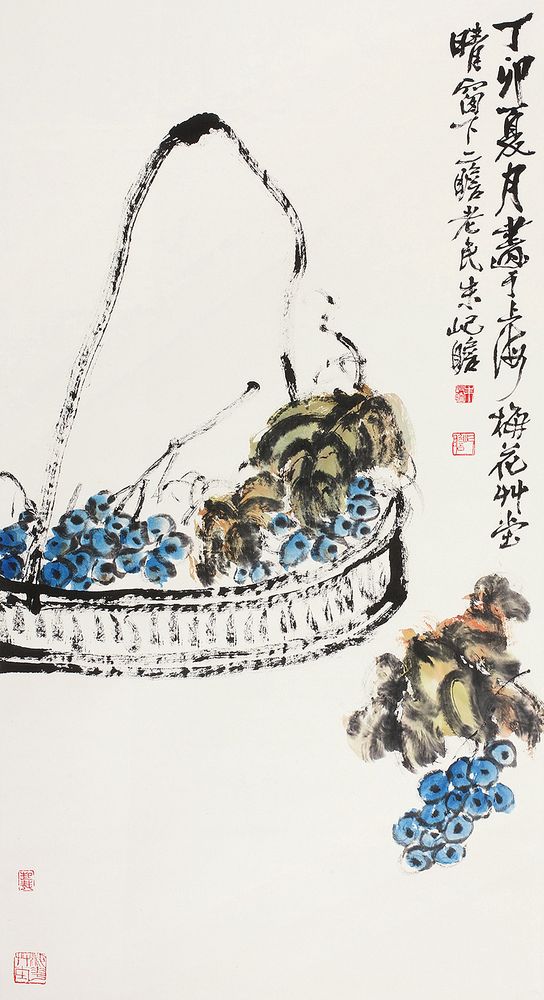 丁卯夏月畫于上海梅花艸堂
晴窗下二瞻老民朱屺瞻